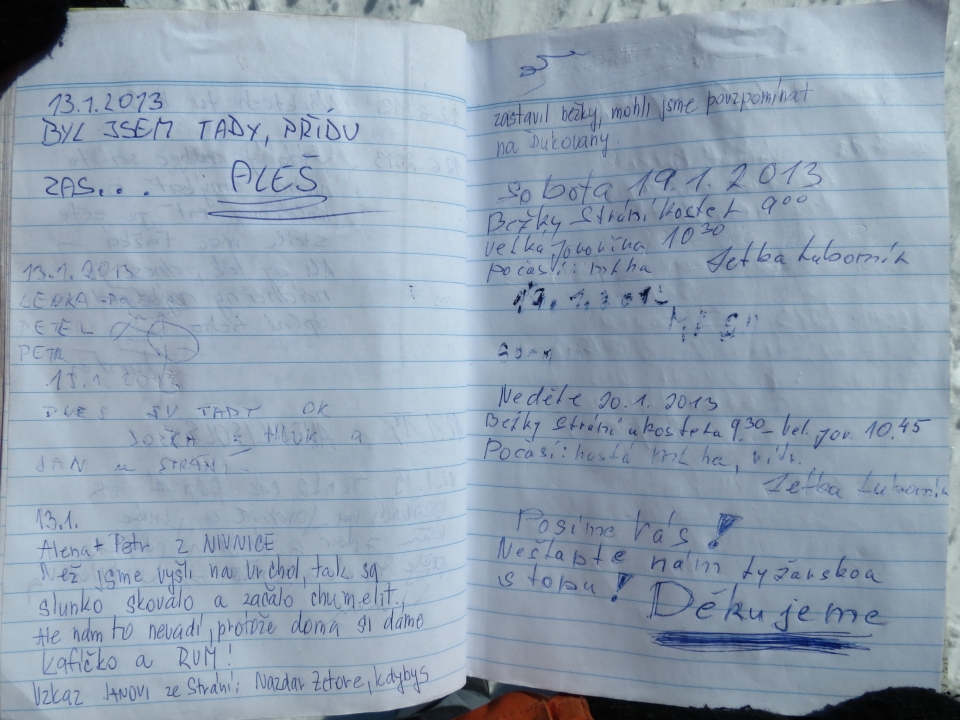 13.1.2013
BYL JSEM TADY, PŘÍDU
ZAS... ALEŠ
13.1.2013
LENKA
PETR
13.1.
DNES TADY OK
a
JAN STRÁNÍ
13.1.
Alena + Petr z NIVNICE
Než jsme vyšli na vrchol, tak sa
slunko skovalo a začalo chumelit.
Ale nám to nevadí, protože doma si dáme
kafíčko a RUM!
Vzkaz JANOVI ze Strání: Nazdar Zetore, kdybys
zastavil bežky, mohli jsme povzpomínat
na Dukovany.
Sobota 19.1.2013
Bežky Strání kostel 9⁰⁰
velka javořina 10³⁰
Počasí: mlha Letba Lubomír
Neděle 20.1.2013
Bežky Strání u kostela 9³⁰ - Vel. jav. 10.45
Počasí: hustá mlha, vítr.
Letba Lubomír
Posíme Vás!
Neštapte nám lyžarskou
stopu! Děkujeme